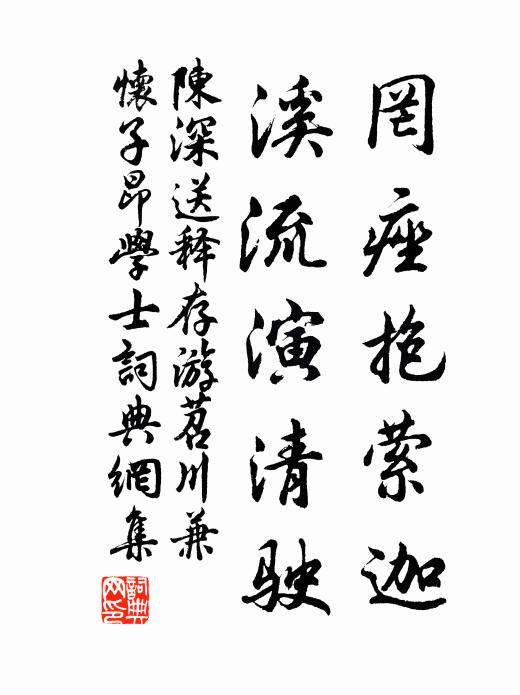 罔痙抱萦迦
溪流演清駛
陳深送释存游苕川兼
懷子昂學士詞典網集
詞典網印